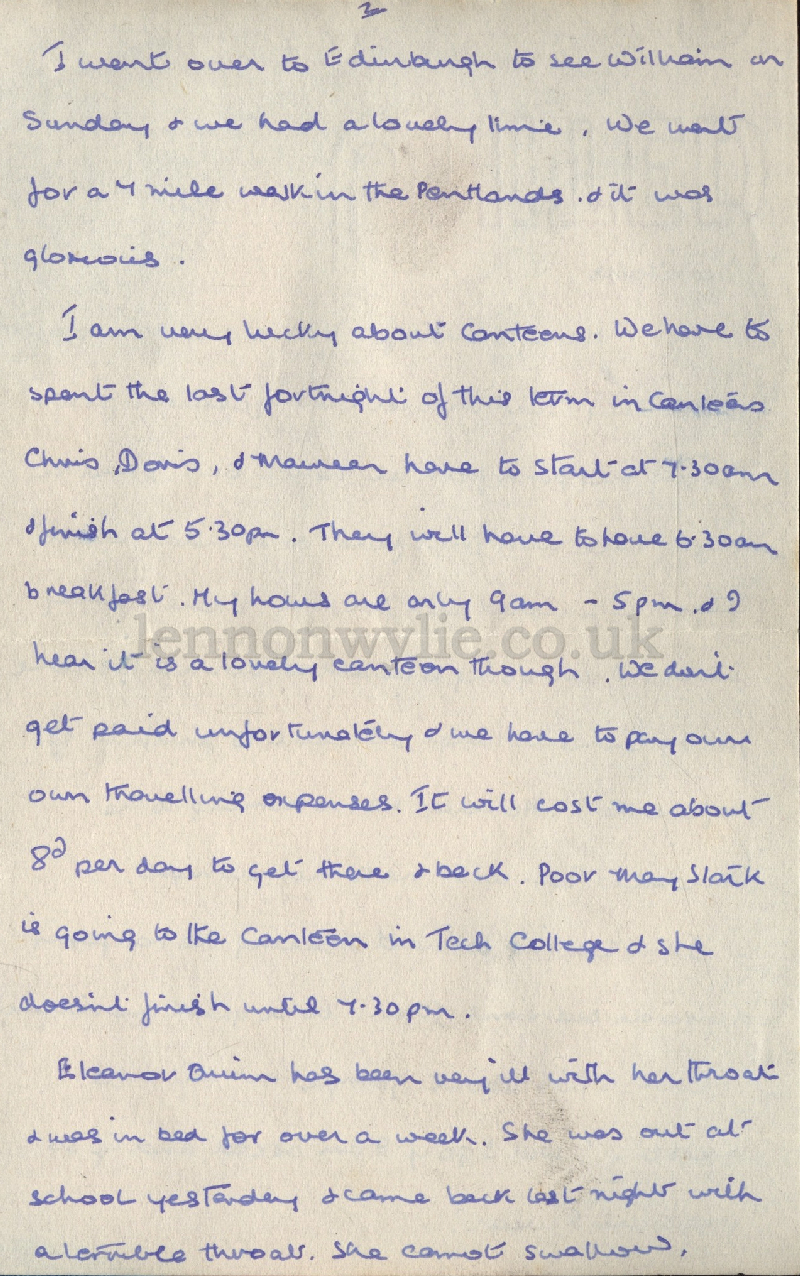 2
I went over to Edinburgh to see William on
Sunday & we had a lovely time. We went
for a 7 mile walk in the Pentlands. & it was
glorious.
I am very lucky about Canteens. We have to
spent the last fortnight of this term in Canteens
Chris, Doris, & Maureen have to start at 7.30am
& finish at 5.30pm. They will have to have 6.30am
breakfast. My hours are only 9am - 5pm. & I
lennonwylie.co.uk
hear it is a lovely canteen though. We don't
get paid unfortunately & we have to pay our
own travelling expenses. It will cost me about
8d per day to get there & back. Poor May
is going to the Canteen in Tech College & she
doesn't finish until 7.30pm.
Eleanor has been very ill with her throat
& was in bed for over a week. She was out at
school yesterday & came back last night with
a terrible throat. She cannot swallow.